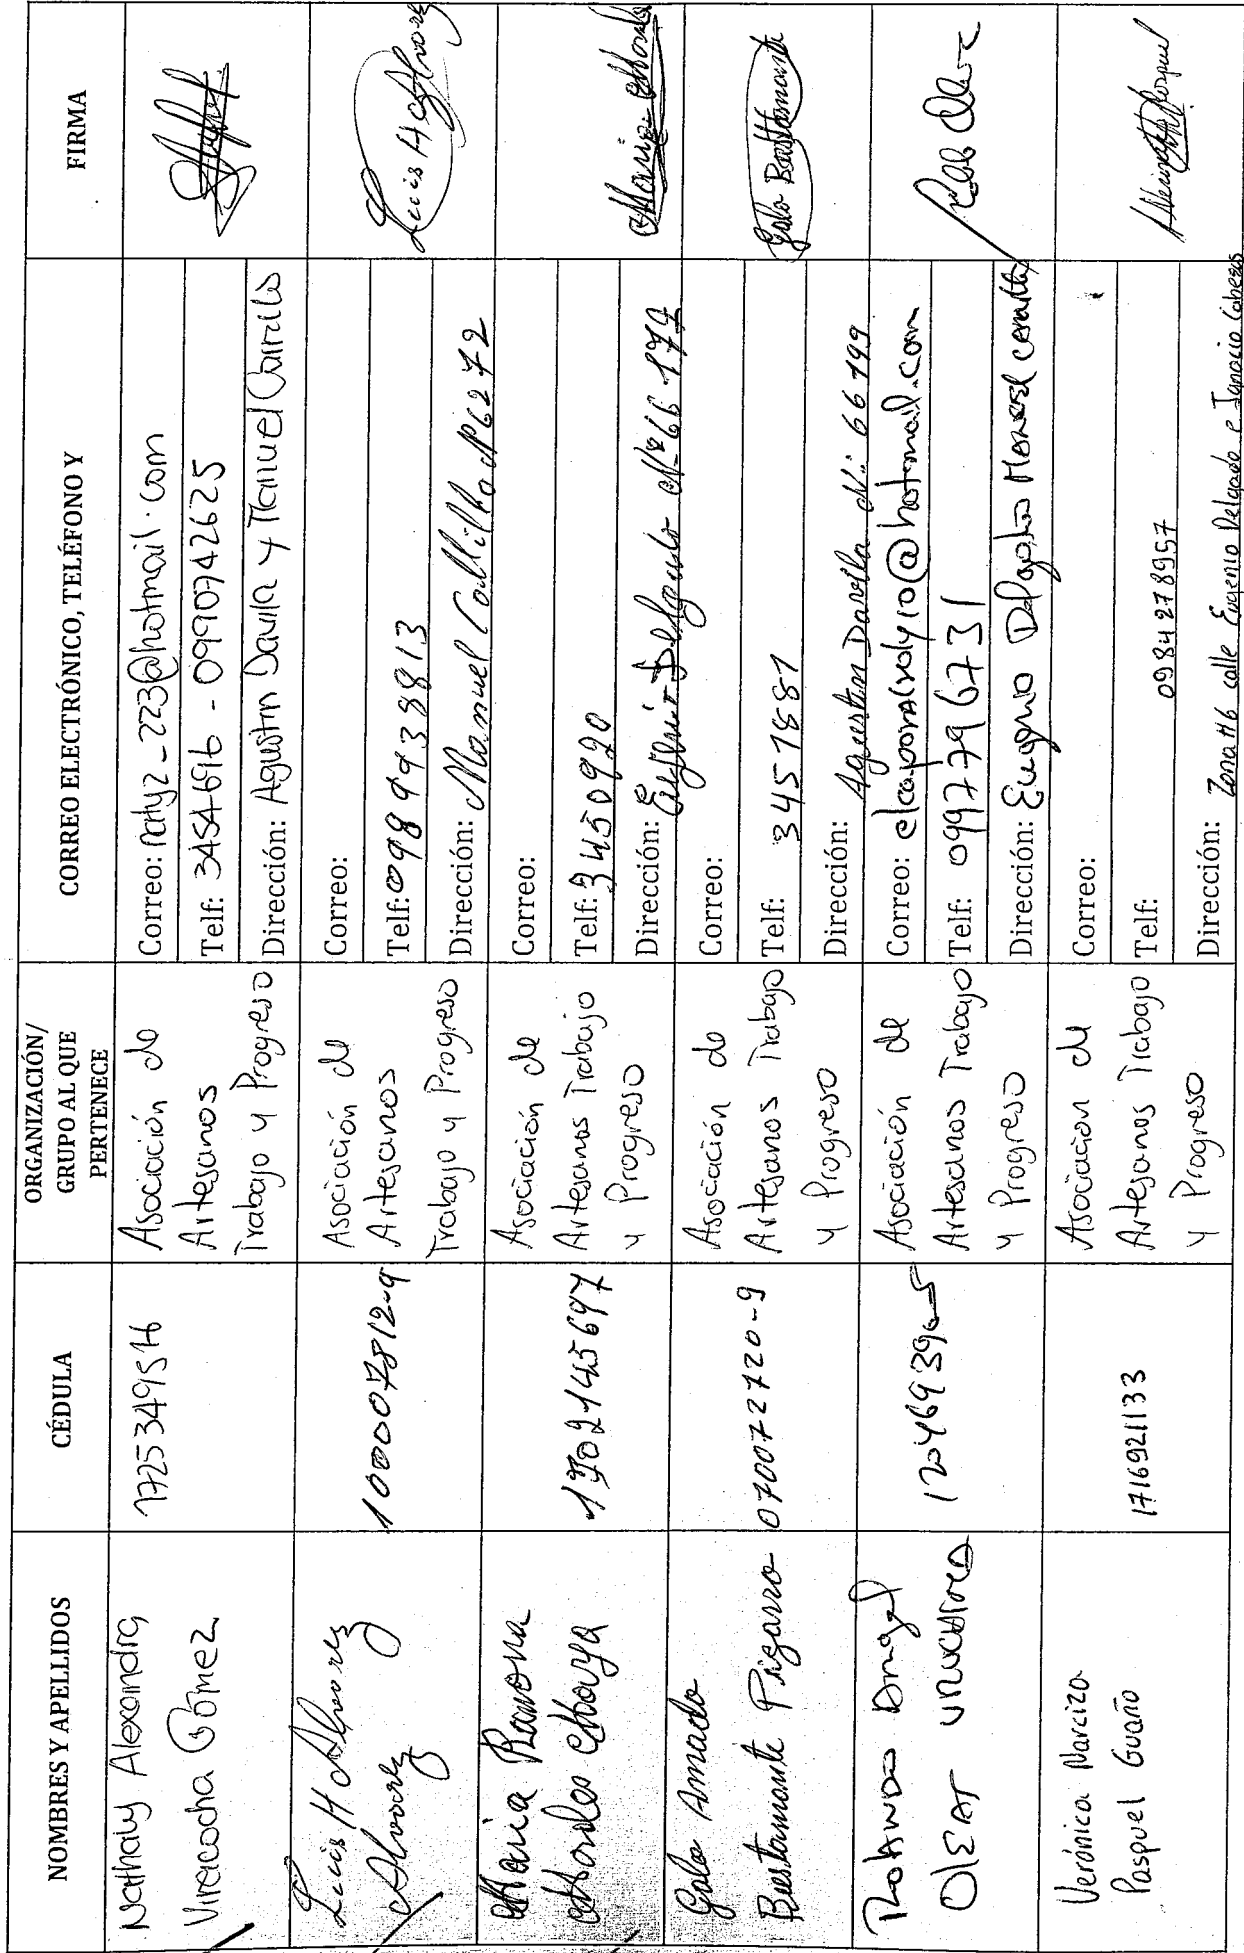 NOMBRES Y APELLIDOS
CÉDULA
ORGANIZACIÓN/
GRUPO AL QUE
PERTENECE
CORREO ELECTRÓNICO, TELÉFONO Y
FIRMA
Nathaly Alexandra
Viracocha Gómez
172534951-6
Asociación de
Artesanos
Trabajo y Progreso
Correo: natyz_223@hotmail.com
Telf: 3454696 - 0990742625
Dirección: Agustin Davila y Manuel Carrillo
Luis H Alvarez
Alvarez
100078129
Asociación de
Artesanos
Trabajo y Progreso
Correo:
Telf: 0989438813
Dirección: Manuel N 6272
Luis H Alvarez
Maria Ramona
Morales Moya
1702145697
Asociación de
Artesanos Trabajo
y Progreso
Correo:
Telf: 3450920
Dirección: Eugenio Delgado Nº 66 179
Maria Morales
Galo Amado
Bustamante Pizarro
070072720-9
Asociación de
Artesanos Trabajo
y Progreso
Correo:
Telf: 3457887
Dirección: Agustin Davila Nº: 66 199
Galo Bustamante
Rolando Angel
120469396-5
Asociación de
Artesanos Trabajo
y Progreso
Correo: @hotmail.com
Telf: 0997796731
Dirección: Eugenio Delgado Manuel
Verónica Narciza
Paspuel Guaño
1716921133
Asociacion de
Artesanos Trabajo
y Progreso
Correo:
Telf: 0984278957
Dirección: Zona H6 calle Eugenio Delgado e Ignacio Cabezas